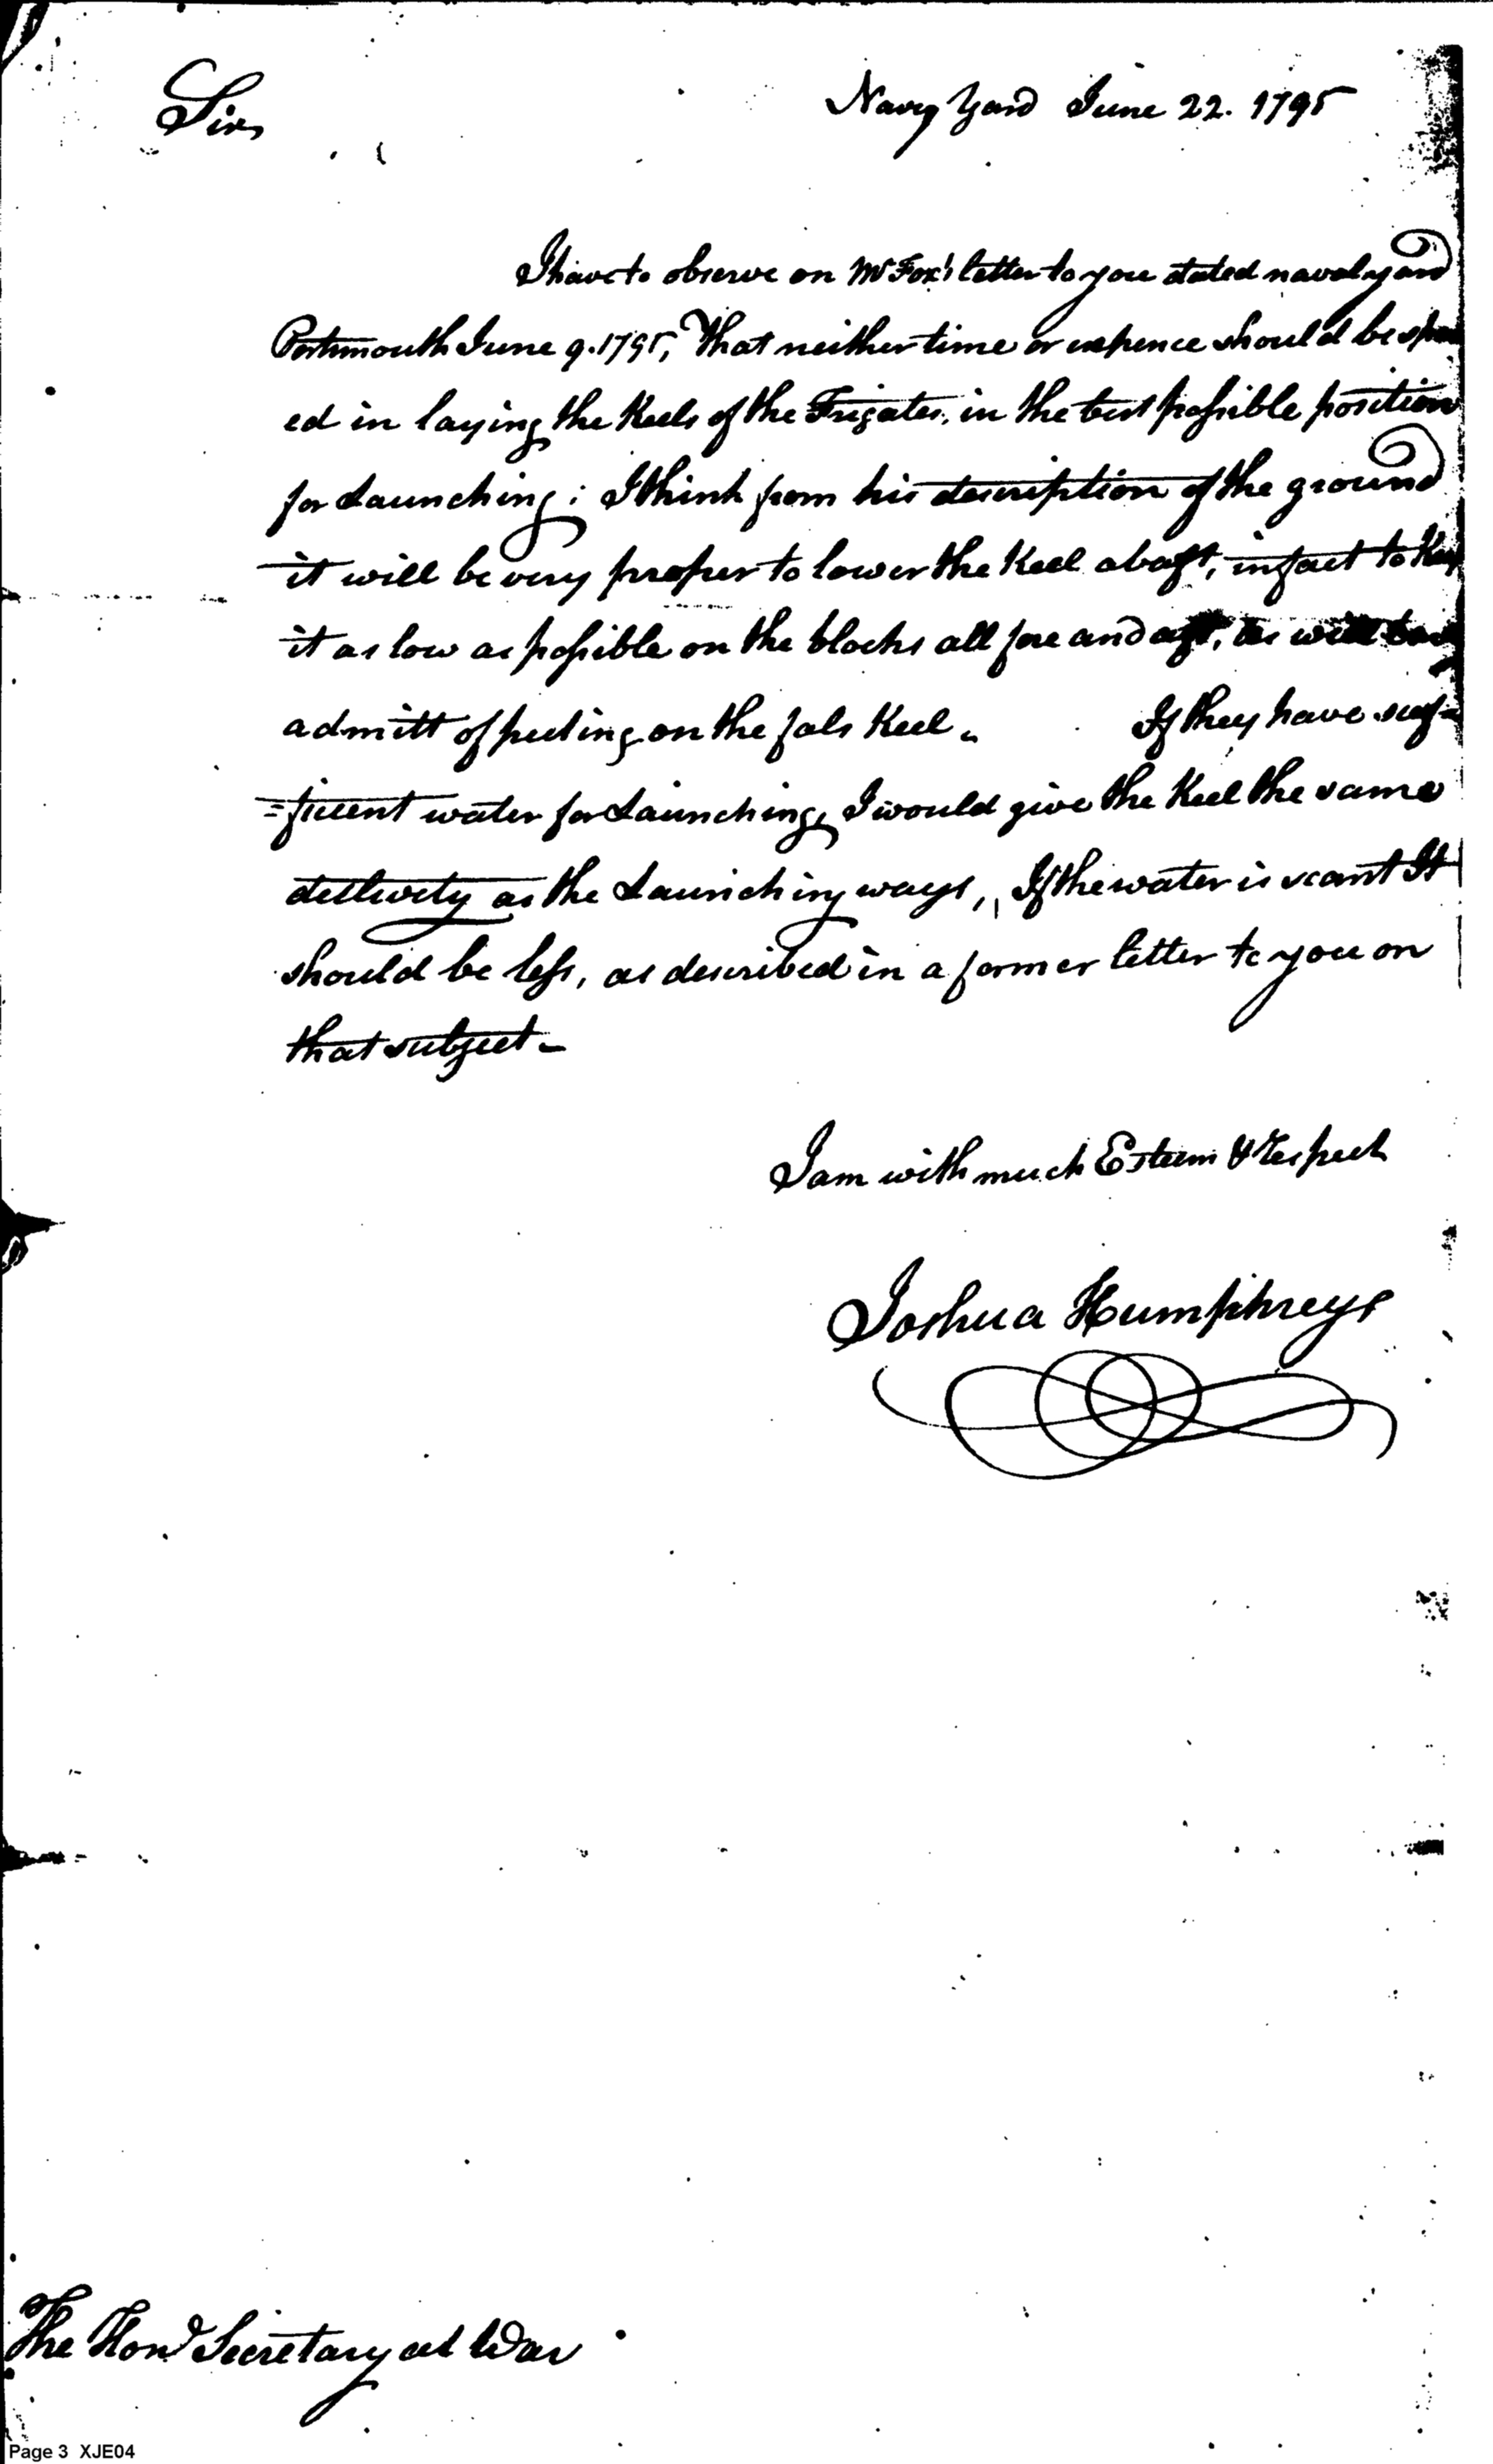 Navy Yard June 22. 1795
Sir,
I have to observe on Mr Fox's letter to you dated naval yard
Portsmouth June 9. 1795, That neither time or expence should be spar
ed in laying the Keels of the Frigates, in the best possible position
for Launching; I think from his description of the ground
it will be very proper to lower the Keel abaft, infact to Keep
it as low as possible on the blocks all fore and aft, as will
admitt of puting on the fals Keel. If they have suf=
=ficient water for Launching, I would give the Keel the same
declivety as the Launching ways, If the water is scant It
should be less, as described in a former letter to you on
that subject.
I am with much Esteem & Respect
Joshua Humphreys
The Hond Secretary at War
Page 3 XJE04